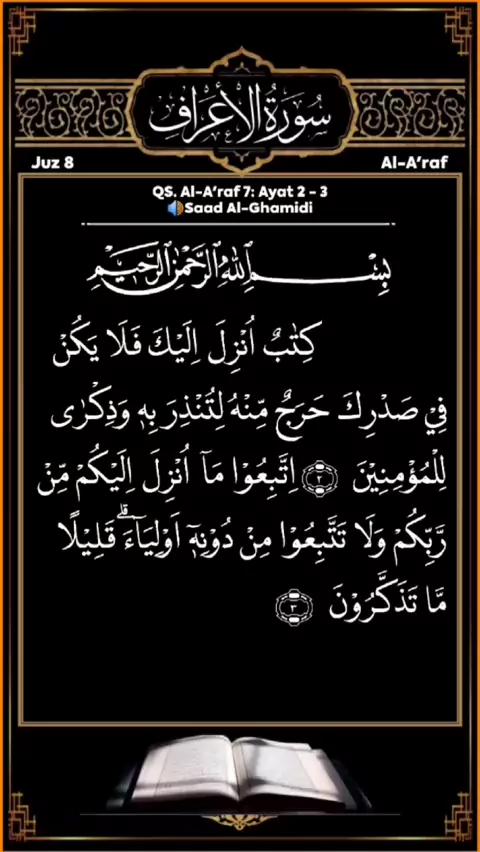 سُورَةُ الْأَعْرَافِ
Juz 8
Al-A'raf
QS. Al-A'raf 7: Ayat 2 - 3
Saad Al-Ghamidi
بِسْمِ اللهِ الرَّحْمٰنِ الرَّحِيْمِ
كِتٰبٌ اُنْزِلَ اِلَيْكَ فَلَا يَكُنْ
فِيْ صَدْرِكَ حَرَجٌ مِّنْهُ لِتُنْذِرَ بِهٖ وَذِكْرٰى
لِلْمُؤْمِنِيْنَ ۝٢ اِتَّبِعُوْا مَآ اُنْزِلَ اِلَيْكُمْ مِّنْ
رَّبِّكُمْ وَلَا تَتَّبِعُوْا مِنْ دُوْنِهٖٓ اَوْلِيَاۤءَۗ قَلِيْلًا
مَّا تَذَكَّرُوْنَ ۝٣